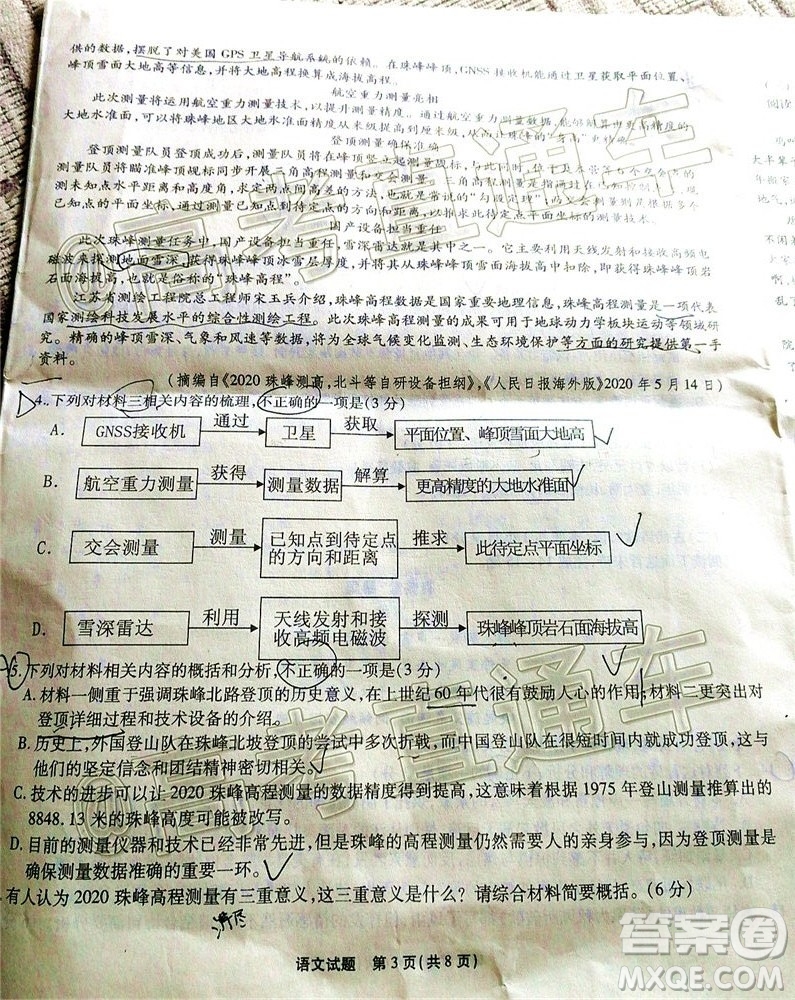 供的数据,摆脱了对美国GPS卫星导航系统的依赖。在珠峰峰顶,GNSS接收机能通过卫星获取平面位置、
峰顶雪面大地高等信息,并将大地高程换算成海拔高程。
航空重力测量亮相
此次测量将运用航空重力测量技术,以提升测量精度。通过航空重力测量数据,能够解算出更高精度的
大地水准面,可以将珠峰地区大地水准面精度从米级提高到厘米级,从而让珠峰的“身高”更精确
登顶测量确保准确
登顶测量队员登顶成功后,测量队员将在峰顶竖立起觇标,
测量队员将瞄准峰顶觇标同步开展三角高程测量和交会测量。三角高程测量是利用已知点和
测未知点水平距离和高度角,求定两点间高差的方法,也就是常说的“勾股定理”;
已知点的平面坐标,通过测量已知点到待定点的方向和距离,以推求待定点平面坐标的测量技术。
国产设备担当重任
此次珠峰测量任务中,国产设备担当重任,雪深雷达就是其中之一。它主要利用天线发射和接收高频电
磁波来探测地面雪深,获得珠峰峰顶冰雪层厚度,并将其从峰顶雪面海拔高中扣除,即可获得珠峰峰顶岩
石面海拔高,也就是俗称的“珠峰高程”。
江苏省测绘工程院总工程师宋玉兵介绍,珠峰高程数据是国家重要地理信息,珠峰高程测量是一项代表
国家测绘科技发展水平的综合性测绘工程。此次珠峰高程测量的成果可用于地球动力学板块运动等领域研
究。精确的峰顶雪深、气象和风速等数据,将为全球气候变化监测、生态环境保护等方面的研究提供第一手
资料。
(摘编自《2020珠峰测高,北斗等自研设备担纲》,《人民日报海外版》2020年5月14日)
4.下列对材料三相关内容的梳理,不正确的一项是(3分)
A. GNSS接收机 通过 卫星 获取 平面位置、峰顶雪面大地高
B. 航空重力测量 获得 测量数据 解算 更高精度的大地水准面
C. 交会测量 测量 已知点到待定点的方向和距离 推求 此待定点平面坐标
D. 雪深雷达 利用 天线发射和接收高频电磁波 探测 珠峰峰顶岩石面海拔高
5.下列对材料相关内容的概括和分析,不正确的一项是(3分)
A.材料一侧重于强调珠峰北路登顶的历史意义,在上世纪60年代很有鼓励人心的作用;材料二更突出对
登顶详细过程和技术设备的介绍。
B.历史上,外国登山队在珠峰北坡登顶的尝试中多次折戟,而中国登山队在很短时间内就成功登顶,这与
他们的坚定信念和团结精神密切相关。
C.技术的进步可以让2020珠峰高程测量的数据精度得到提高,这意味着根据1975年登山测量推算出的
8848.13米的珠峰高度可能被改写。
D.目前的测量仪器和技术已经非常先进,但是珠峰的高程测量仍然需要人的亲身参与,因为登顶测量是
确保测量数据准确的重要一环。
有人认为2020珠峰高程测量有三重意义,这三重意义是什么?请综合材料简要概括。(6分)
语文试题 第3页(共8页)
@高考直通车
@高考直通车
答案圈
MXQE.COM